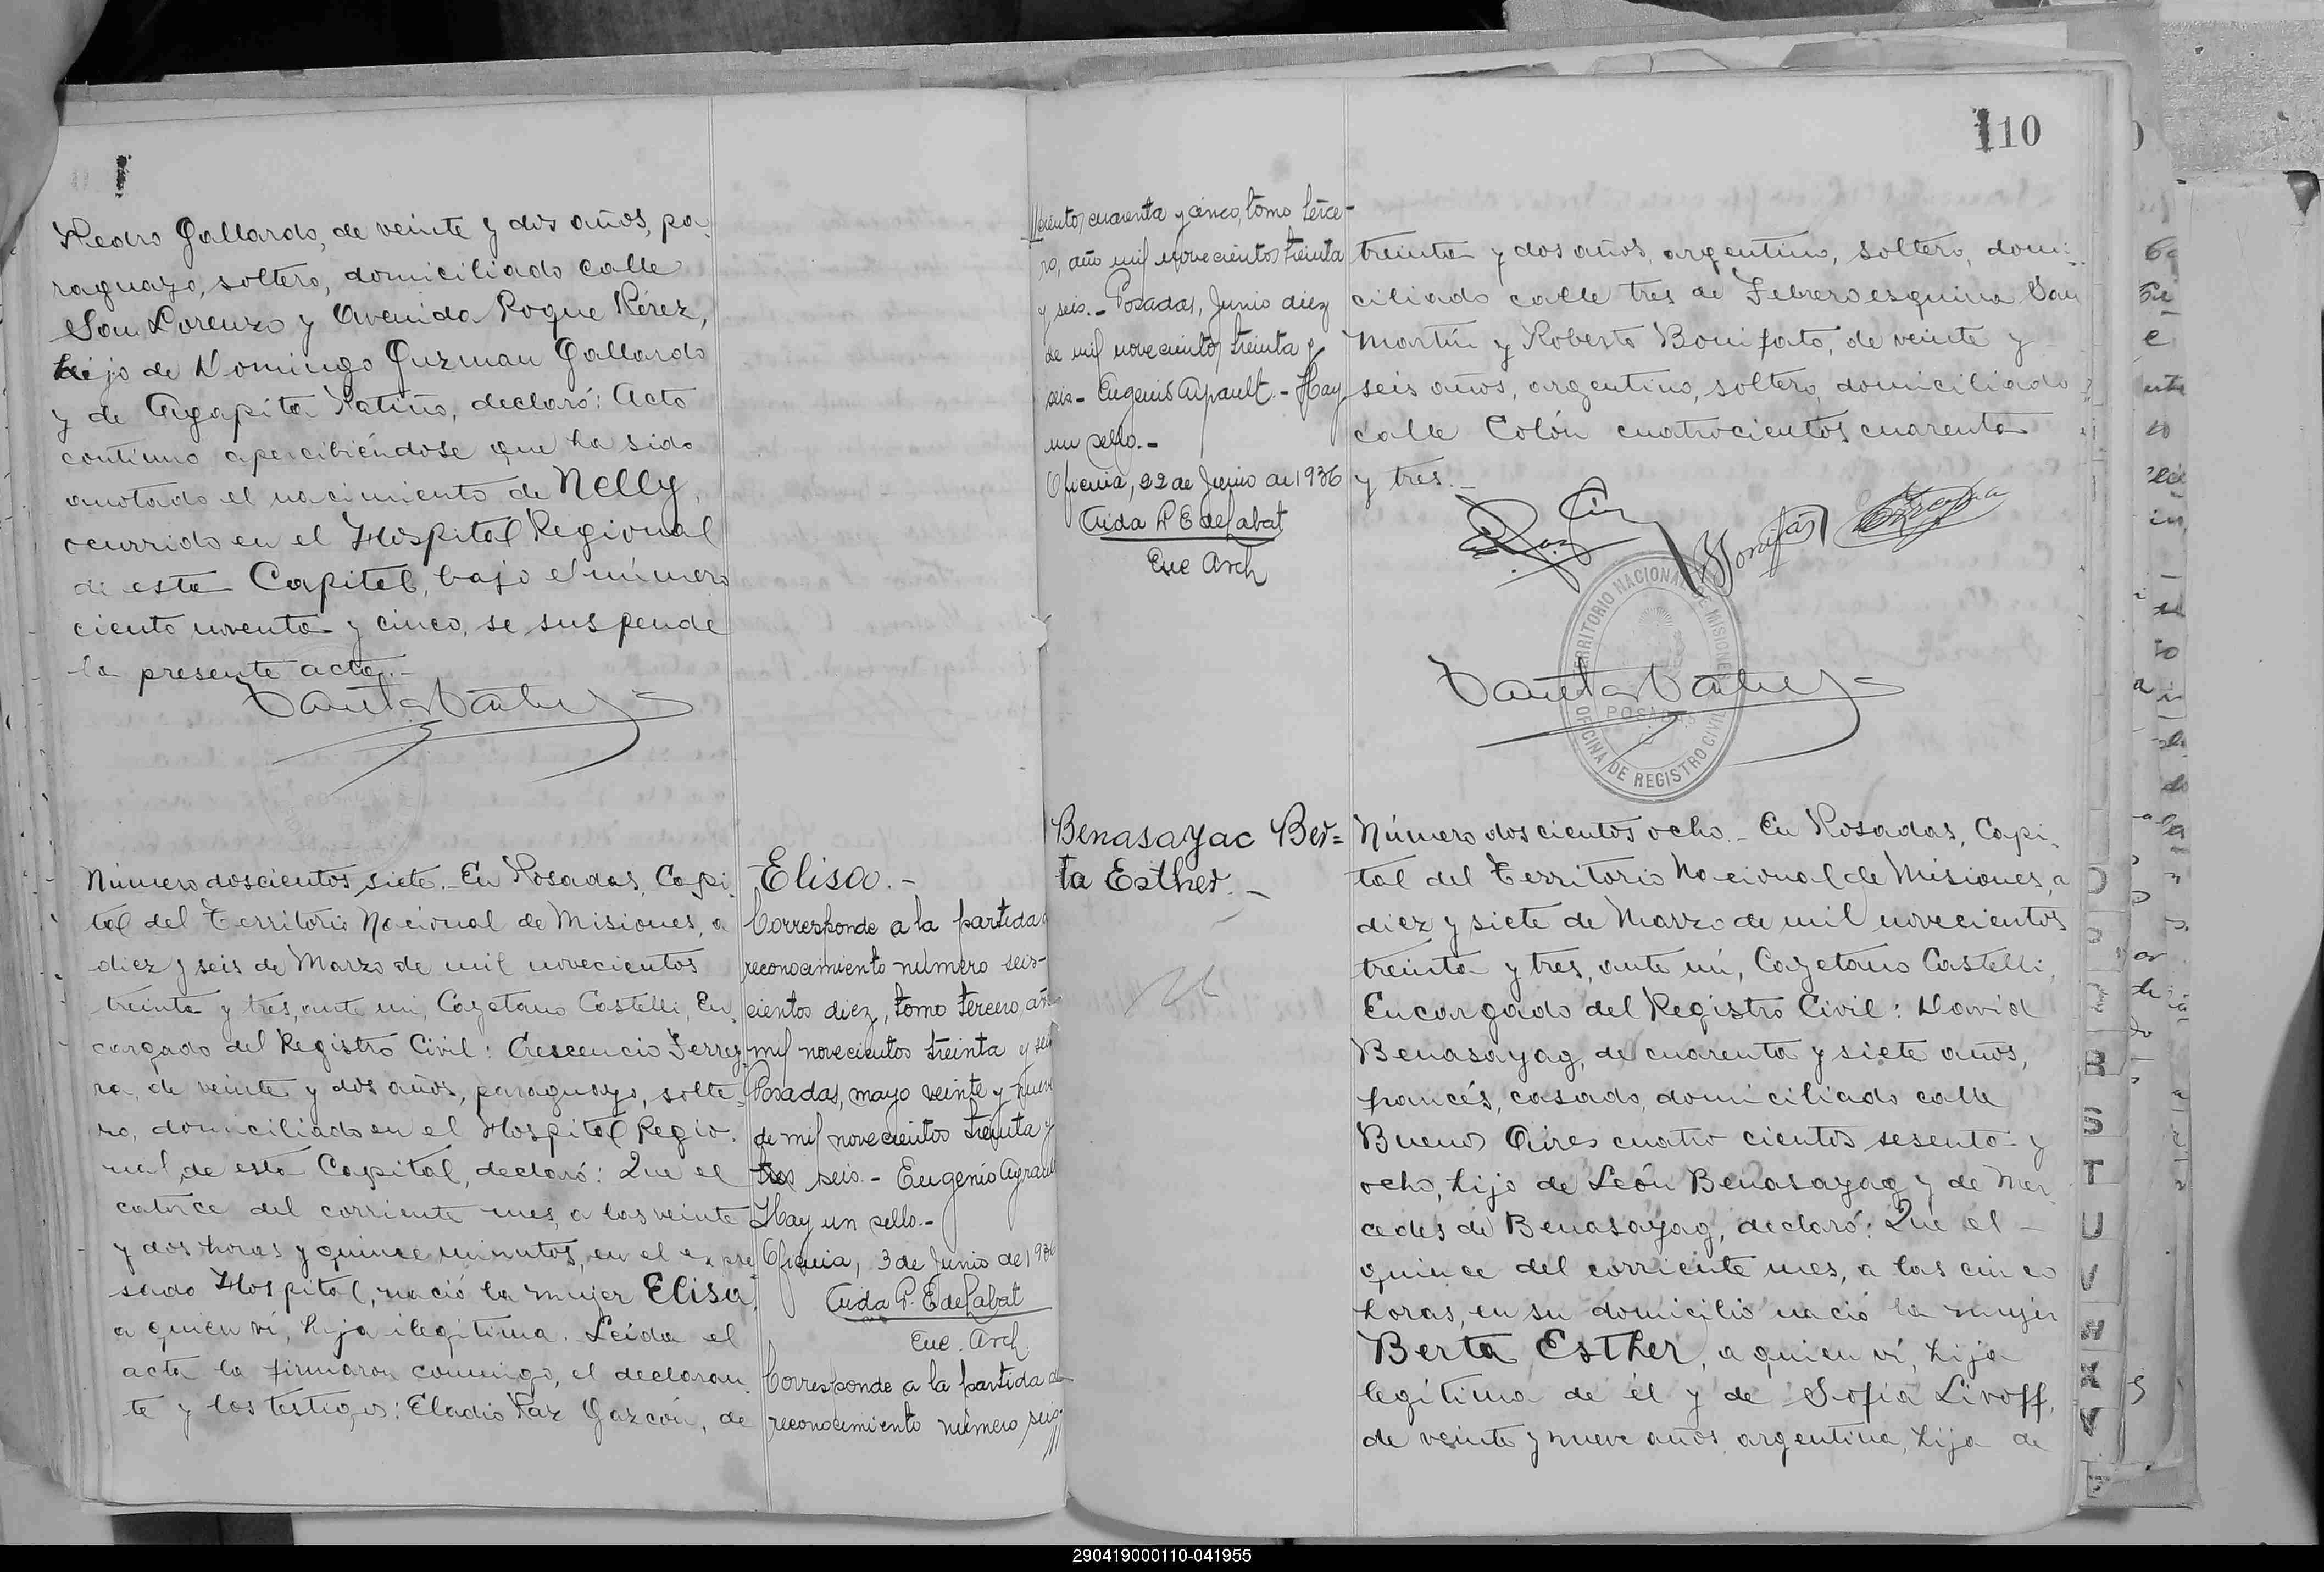 Pedro Gallardo, de veinte y dos años, pa-
raguayo, soltero, domiciliado calle
San Lorenzo y Avenida Roque Pérez,
hijo de Domingo Guzman Gallardo
y de Agapita Patiño, declaró: Acto
continuo apercibiéndose que ha sido
anotado el nacimiento de Nelly,
ocurrido en el Hospital Regional
de esta Capital, bajo el número
ciento noventa y cinco, se suspende
la presente acta.-
Número doscientos siete.- En Posadas, Capi-
tal del Territorio Nacional de Misiones, a
diez y seis de Marzo de mil novecientos
treinta y tres, ante mi, Cayetano Castelli, En-
cargado del Registro Civil: Crescencio Ferrey-
ra, de veinte y dos años, paraguayo, solte-
ro, domiciliado en el Hospital Regio-
nal de esta Capital, declaró: Que el
catorce del corriente mes, a las veinte
y dos horas y quince minutos, en el expre-
sado Hospital, nació la mujer Elisa,
a quien ví, hija ilegítima. Leída el
acta la firmaron conmigo, el declaran-
te y los testigos: Eladio Paz Gazcón, de
Elisa.-
Corresponde a la partida
reconocimiento número seis-
cientos diez, tomo tercero, año
mil novecientos treinta y seis
Posadas, mayo veinte y nueve
de mil novecientos treinta y
tres seis.- Eugenio
Hay un sello.-
Oficina, 3 de Junio de 1936
Aida P. E de Labat
Enc. Arch.
Corresponde a la partida de
reconocimiento número seis-
110
//cientos cuarenta y cinco, tomo terce-
ro, año mil novecientos treinta
y seis.- Posadas, Junio diez
de mil novecientos treinta y
seis- Eugenio - Hay
un sello.-
Oficina, 22 de Junio de 1936
Aida P E de Labat
Enc Arch
treinta y dos años, argentino, soltero, domi-
ciliado calle tres de Febrero esquina San
Martín y Roberto Bonifato, de veinte y
seis años, argentino, soltero, domiciliado
calle Colón cuatrocientos cuarenta
y tres.-
TERRITORIO NACIONAL DE MISIONES
POSADAS
OFICINA DE REGISTRO CIVIL
Benasayac Ber=
ta Esther.-
Número doscientos ocho.- En Posadas, Capi-
tal del Territorio Nacional de Misiones, a
diez y siete de Marzo de mil novecientos
treinta y tres, ante mí, Cayetano Castelli,
Encargado del Registro Civil: David
Benasayag, de cuarenta y siete años,
francés, casado, domiciliado calle
Buenos Aires cuatro cientos sesenta y
ocho, hijo de León Benasayag y de Mer-
cedes de Benasayag, declaró: Que el -
quince del corriente mes, a las cinco
horas, en su domicilio nació la mujer
Berta Esther, a quien ví, hija
legítima de él y de Sofía Livoff,
de veinte y nueve años, argentina, hija de
R
S
T
U
V
X
290419000110-041955